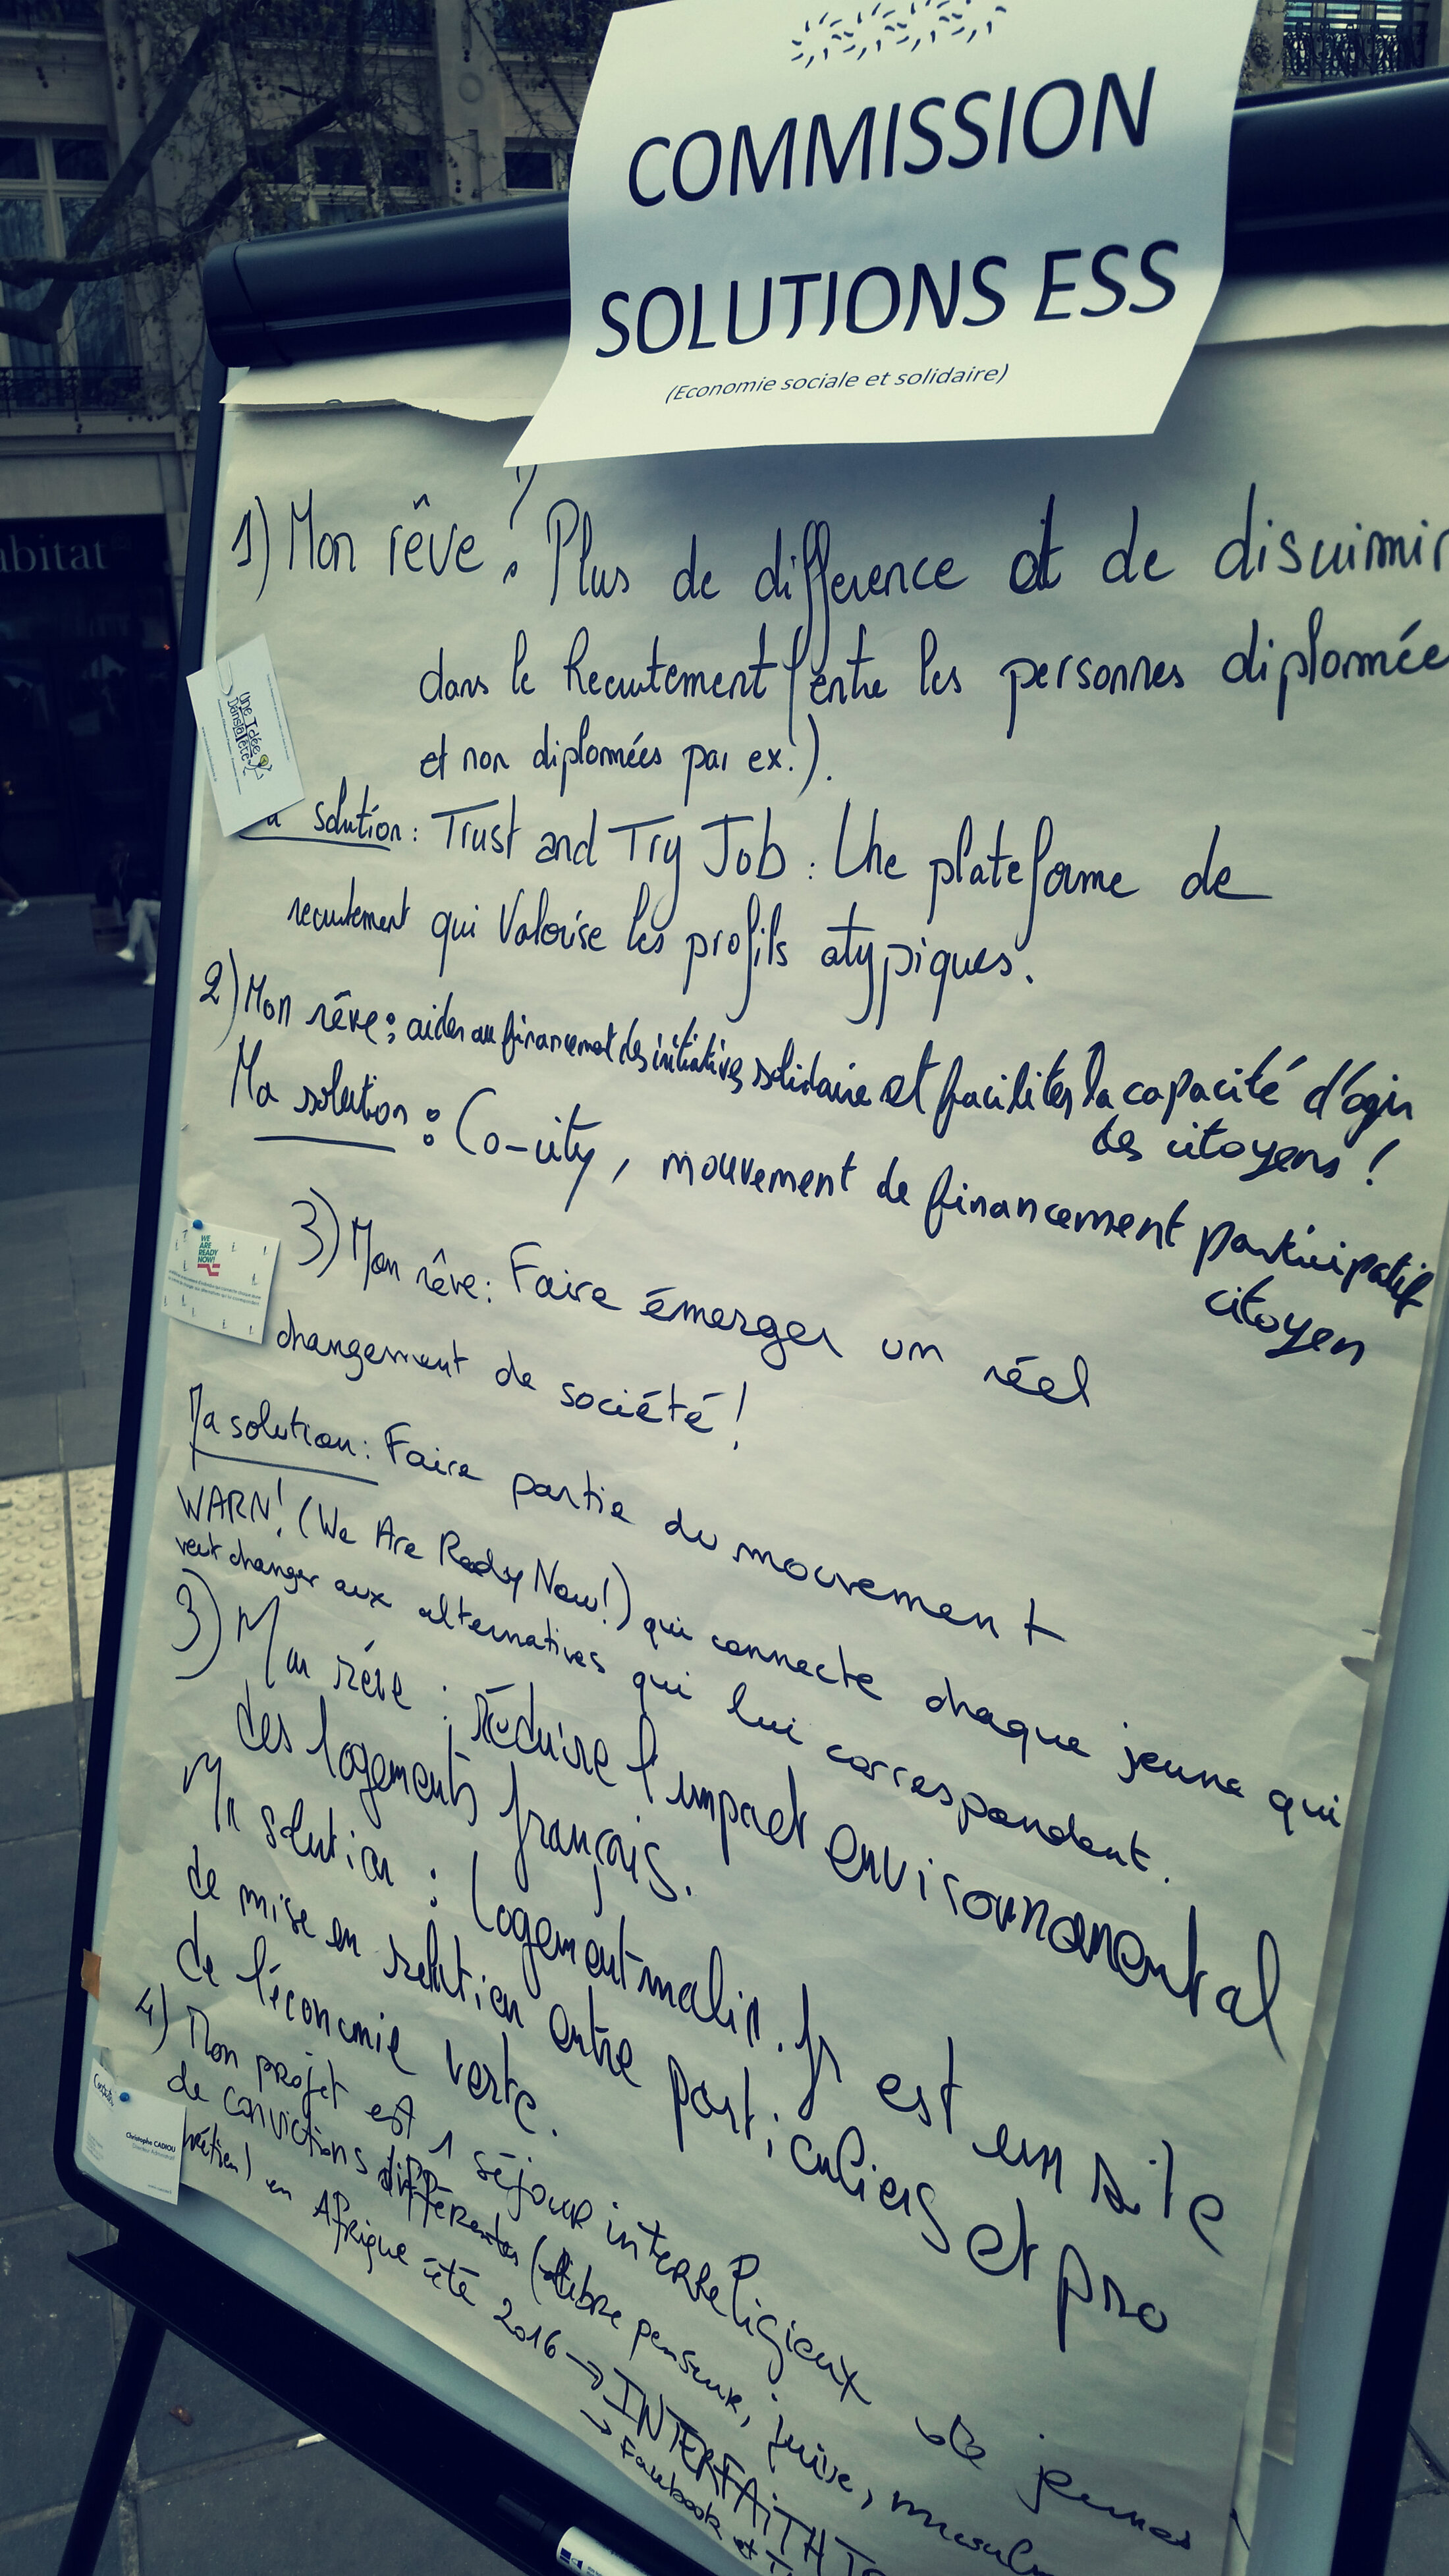 COMMISSION
SOLUTIONS ESS
(Economie sociale et solidaire)
abitat
1) Mon rêve : Plus de difference et de discrimin
dans le Recrutement (entre les personnes diplomée
et non diplomées par ex.).
Une Idée
Dans la Tête
a solution : Trust and Try Job : Une plateforme de
recrutement qui Valorise les profils atypiques.
2) Mon rêve : aider au financement des initiatives solidaire et faciliter la capacité d'agir
des citoyens !
Ma solution : Co-city, mouvement de financement participatif
citoyen
3) Mon rêve : Faire émerger un réel
changement de société !
WE
ARE
READY
NOW!
Ma solution : Faire partie du mouvement
WARN! (We Are Ready Now!) qui connecte chaque jeune qui
veut changer aux alternatives qui lui correspondent.
3) Mon rêve : réduire l'impact environnemental
des logements français.
Ma solution : Logementmalin.fr est un site
de mise en relation entre particuliers et pro
de l'économie verte.
4) Mon projet est 1 séjour interreligieux de jeunes
de convictions différentes (libre penseur, juive, musulm
hrétien) en Afrique été 2016 → INTERFAITH To
→ Facebook et T
Christophe CADIOU